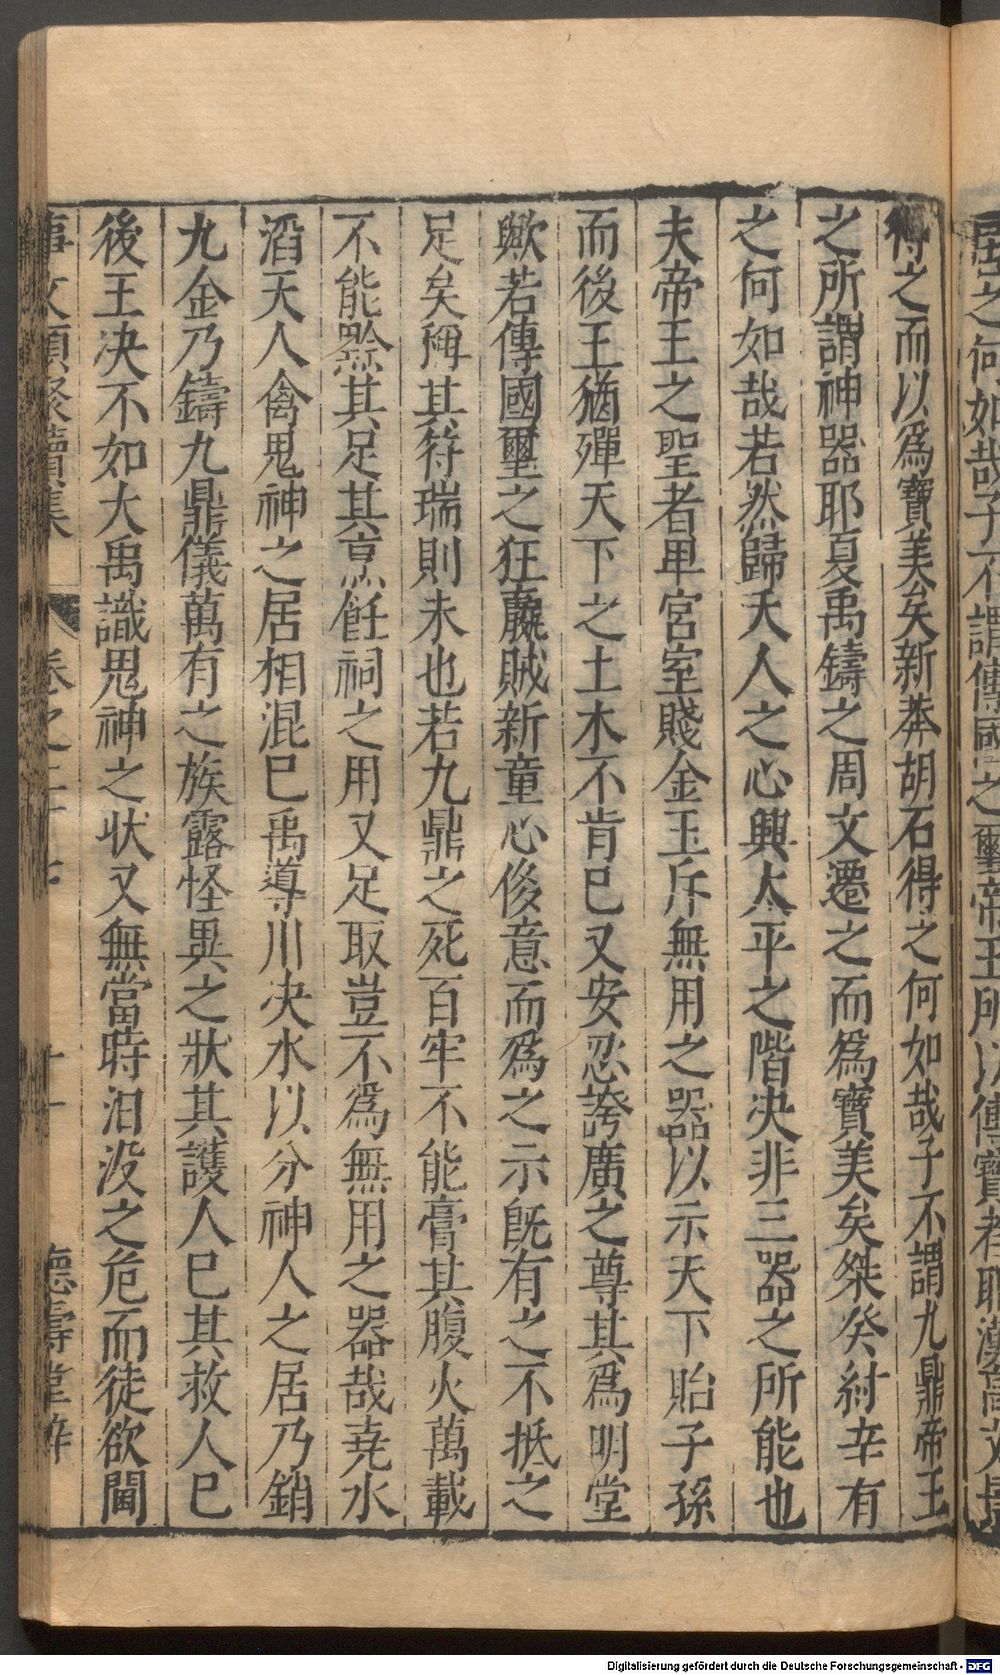 璽之何如哉子不謂傳國之璽帝王所以傳寶者耶漢高文景
得之而以爲寶美矣新莽胡石得之何如哉子不謂九鼎帝王
之所謂神器耶夏禹鑄之周文遷之而爲寶美矣桀癸紂辛有
之何如哉若然歸天人之心興太平之階决非三器之所能也
夫帝王之聖者卑宮室賤金玉斥無用之器以示天下貽子孫
而後王猶殫天下之土木不肯已又安忍誇廣之尊其爲明堂
歟若傳國璽之狂嬴賊新童心侈意而爲之示旣有之不抵之
足矣稱其符瑞則未也若九鼎之死百牢不能膏其腹火萬載
不能黔其足其烹飪祠之用又足取豈不爲無用之器哉堯水
滔天人禽鬼神之居相混巳禹導川决水以分神人之居乃銷
九金乃鑄九鼎儀萬有之族露怪異之狀其護人巳其救人巳
後王决不如大禹識鬼神之狀又無當時汨沒之危而徒欲閫
事文類聚續集 卷之二十七 十一 德壽堂梓
Digitalisierung gefördert durch die Deutsche Forschungsgemeinschaft - DFG